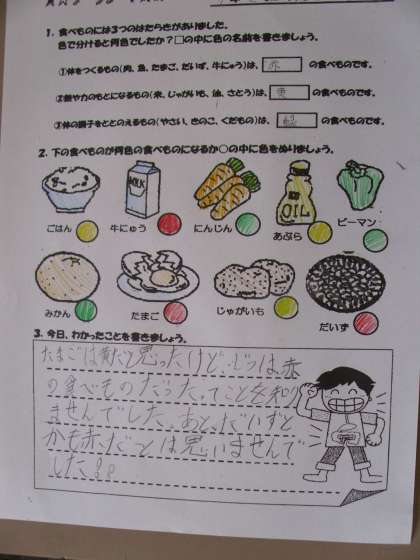 1. 食べものには3つのはたらきがありました。
色で分けると何色でしたか?□の中に色の名前を書きましょう。
①体をつくるもの(肉、魚、たまご、だいず、牛にゅう)は、 赤 の食べものです。
②熱や力のもとになるもの(米、じゃがいも、油、さとう)は、 黄 の食べものです。
③体の調子をととのえるもの(やさい、きのこ、くだもの)は、 の食べものです。
2. 下の食べものが何色の食べものになるか○の中に色をぬりましょう。
MILK
OIL
ごはん 牛にゅう にんじん あぶら ピーマン
みかん たまご じゃがいも だいず
3. 今日、わかったことを書きましょう。
たまごは黄だと思ったけど、じつは、赤
の食べものだった。てことを知り
ませんでした。あと、だいずと
かも赤、だっとは思いませんで
した。